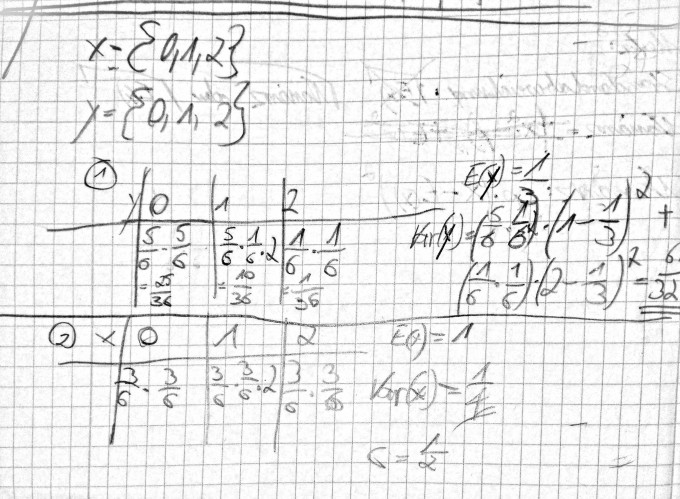 x = {0,1,2}
y = {0,1,2}
① y | 0 | 1 | 2
5/6 · 5/6 | 5/6 · 1/6 · 2 | 1/6 · 1/6
= 25/36 | = 10/36 | = 1/36
E(y) = 1/3
Var(y) = (5/6 · 1/6) · (1 - 1/3)² +
(1/6 · 1/6) · (2 - 1/3)² =
② x | 0 | 1 | 2
3/6 · 3/6 | 3/6 · 3/6 · 2 | 3/6 · 3/6
E(x) = 1
Var(x) =
σ = 1/2